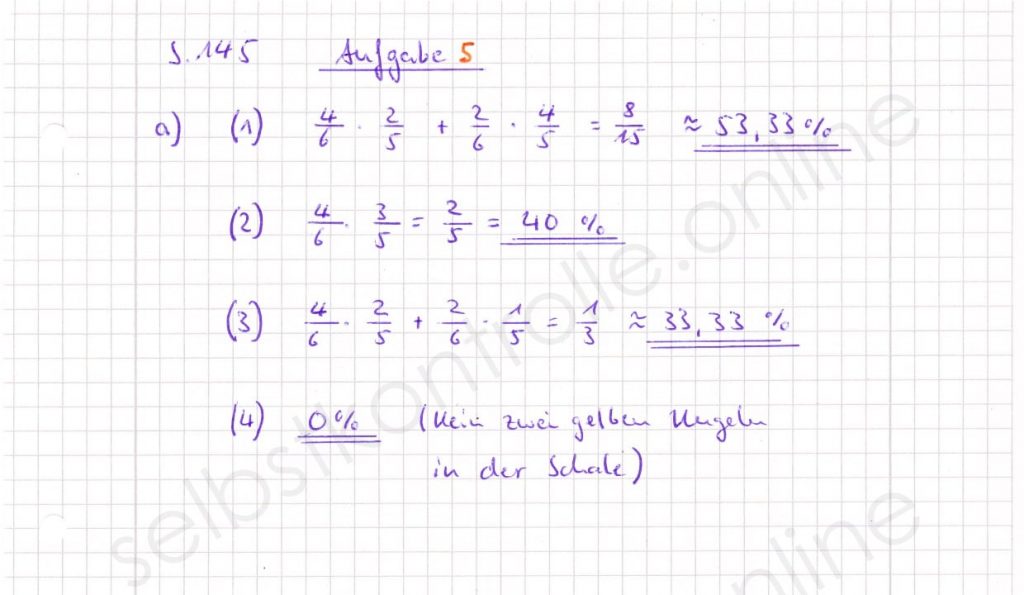 S. 145 Aufgabe 5
a) (1) 4/6 · 2/5 + 2/6 · 4/5 = 8/15 ≈ 53,33 %
(2) 4/6 · 3/5 = 2/5 = 40 %
(3) 4/6 · 2/5 + 2/6 · 1/5 = 1/3 ≈ 33,33 %
(4) 0 % (Kein zwei gelben Kugeln
in der Schale)
selbstkontrolle.online
online